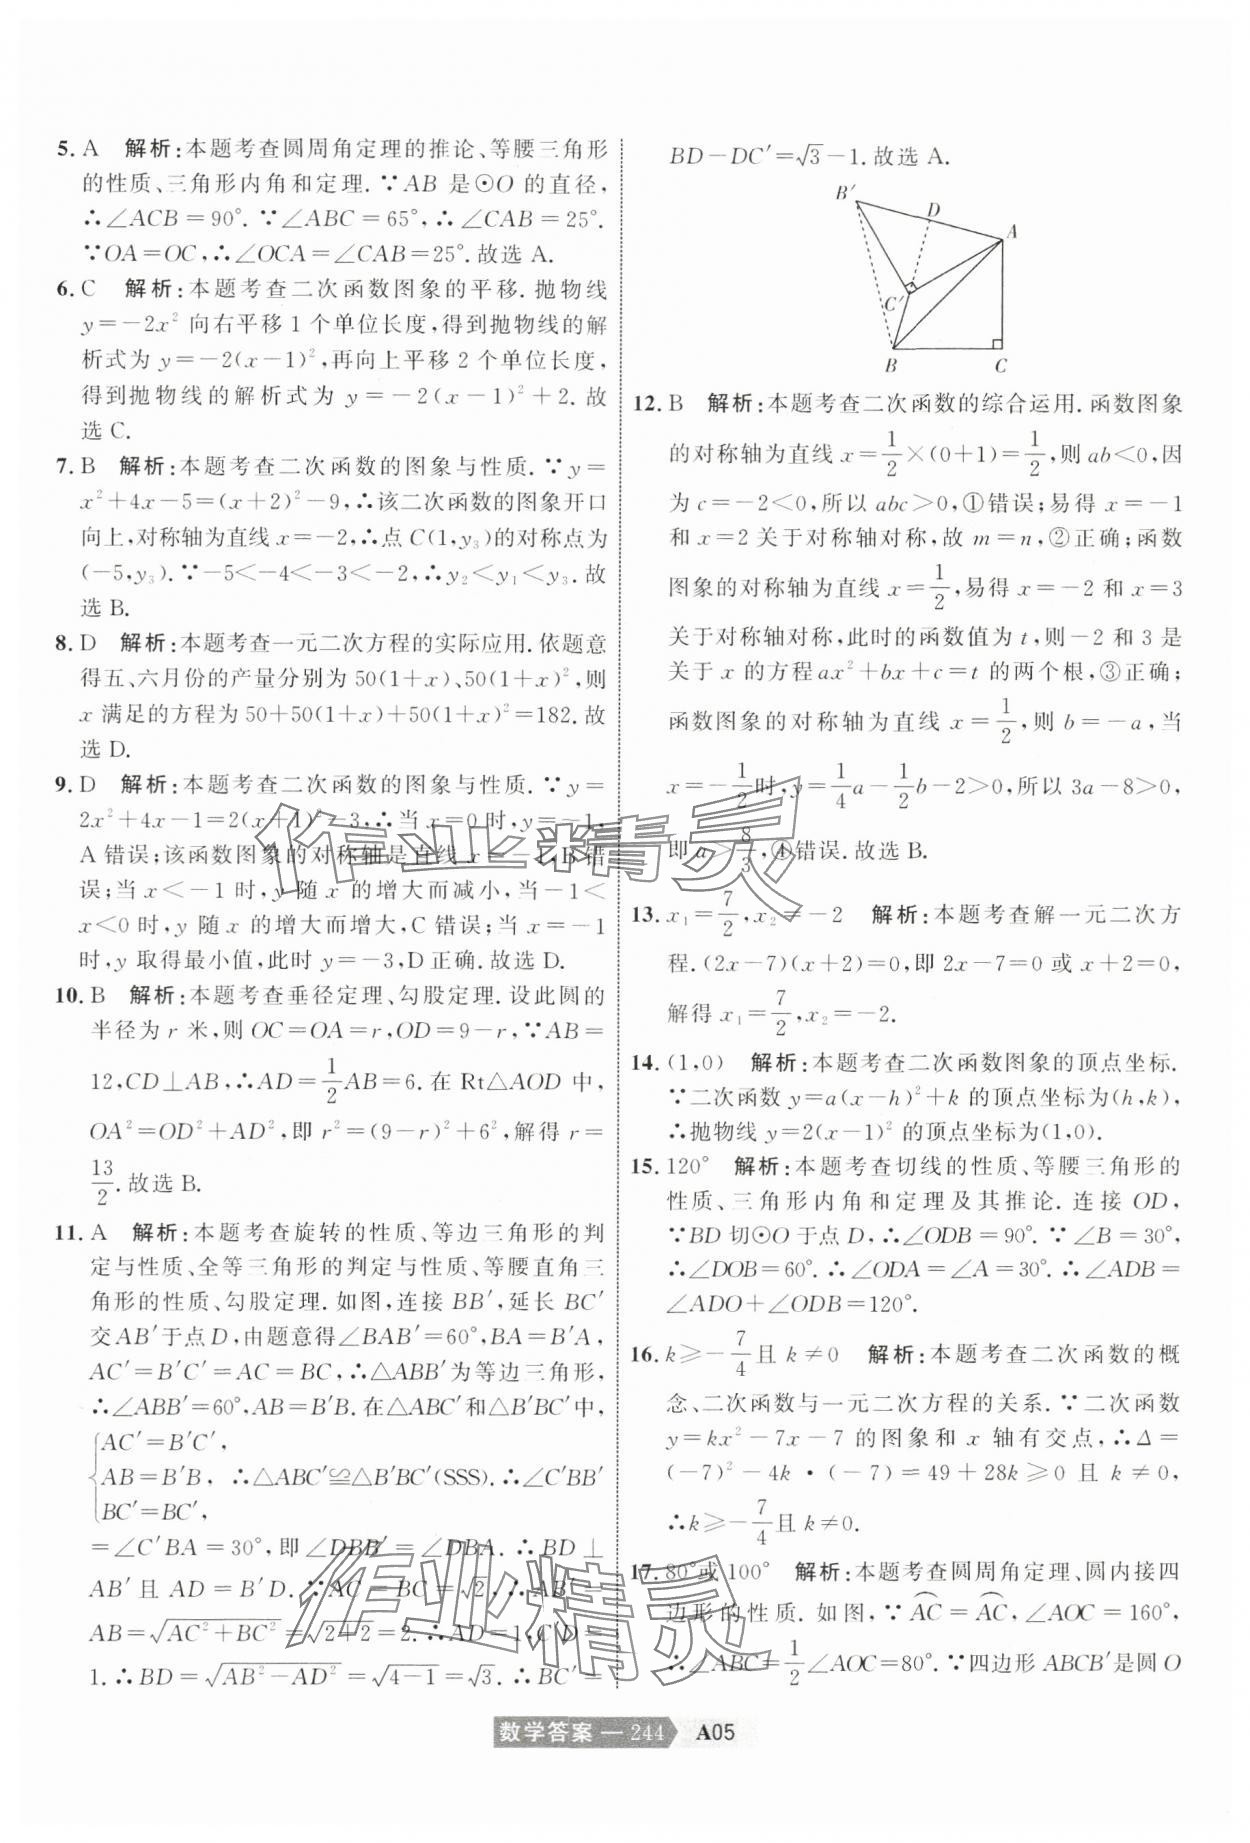 5. A 解析:本题考查圆周角定理的推论、等腰三角形
的性质、三角形内角和定理. ∵AB 是⊙O 的直径,
∴∠ACB=90°. ∵∠ABC=65°, ∴∠CAB=25°.
∵OA=OC,∴∠OCA=∠CAB=25°.故选 A.
6. C 解析:本题考查二次函数图象的平移. 抛物线
y=-2x² 向右平移 1 个单位长度,得到抛物线的解
析式为 y=-2(x-1)²,再向上平移 2 个单位长度,
得到抛物线的解析式为 y=-2(x-1)²+2. 故
选 C.
7. B 解析:本题考查二次函数的图象与性质. ∵y=
x²+4x-5=(x+2)²-9,∴该二次函数的图象开口
向上,对称轴为直线 x=-2,∴点 C(1,y₃)的对称点为
(-5,y₃).∵-5<-4<-3<-2,∴y₂<y₁<y₃. 故
选 B.
8. D 解析:本题考查一元二次方程的实际应用. 依题意
得五、六月份的产量分别为 50(1+x)、50(1+x)²,则
x 满足的方程为 50+50(1+x)+50(1+x)²=182. 故
选 D.
9. D 解析:本题考查二次函数的图象与性质. ∵y=
2x²+4x-1=2(x+1)²-3,∴当 x=0 时,y=-1,
A 错误;该函数图象的对称轴是直线 x=-1,B 错
误;当 x<-1 时,y 随 x 的增大而减小,当-1<
x<0 时,y 随 x 的增大而增大,C 错误;当 x=-1
时,y 取得最小值,此时 y=-3,D 正确.故选 D.
10. B 解析:本题考查垂径定理、勾股定理. 设此圆的
半径为 r 米,则 OC=OA=r,OD=9-r,∵AB=
12,CD⊥AB,∴AD=1/2AB=6. 在 Rt△AOD 中,
OA²=OD²+AD²,即 r²=(9-r)²+6²,解得 r=
13/2.故选 B.
11. A 解析:本题考查旋转的性质、等边三角形的判
定与性质、全等三角形的判定与性质、等腰直角三
角形的性质、勾股定理. 如图,连接 BB′,延长 BC′
交 AB′于点 D,由题意得∠BAB′=60°,BA=B′A,
AC′=B′C′=AC=BC,∴△ABB′为等边三角形,
∴∠ABB′=60°,AB=B′B. 在△ABC′和△B′BC′中,
AC′=B′C′,
AB=B′B, ∴△ABC′≌△B′BC′(SSS).∴∠C′BB′
BC′=BC′,
=∠C′BA=30°,即 ∠DBB′=∠DBA. ∴BD⊥
AB′且 AD=B′D. ∵AC=BC=√2,∴AB′=
AB=√(AC²+BC²)=√(2+2)=2. ∴AD=1,C′D=
1. ∴BD=√(AB²-AD²)=√(4-1)=√3. ∴BC′=
BD-DC′=√3-1.故选 A.
B′
D
A
C′
B
C
12. B 解析:本题考查二次函数的综合运用. 函数图象
的对称轴为直线 x=1/2×(0+1)=1/2,则 ab<0,因
为 c=-2<0,所以 abc>0,①错误;易得 x=-1
和 x=2 关于对称轴对称,故 m=n,②正确;函数
图象的对称轴为直线 x=1/2,易得 x=-2 和 x=3
关于对称轴对称,此时的函数值为 t,则-2 和 3 是
关于 x 的方程 ax²+bx+c=t 的两个根,③正确;
函数图象的对称轴为直线 x=1/2,则 b=-a,当
x=-1/2时,y=1/4a-1/2b-2>0,所以 3a-8>0,
即 a>8/3,④错误.故选 B.
13. x₁=7/2,x₂=-2 解析:本题考查解一元二次方
程.(2x-7)(x+2)=0,即 2x-7=0 或 x+2=0,
解得 x₁=7/2,x₂=-2.
14. (1,0) 解析:本题考查二次函数图象的顶点坐标.
∵二次函数 y=a(x-h)²+k 的顶点坐标为(h,k),
∴抛物线 y=2(x-1)² 的顶点坐标为(1,0).
15. 120° 解析:本题考查切线的性质、等腰三角形的
性质、三角形内角和定理及其推论. 连接 OD,
∵BD 切⊙O 于点 D,∴∠ODB=90°. ∵∠B=30°,
∴∠DOB=60°. ∴∠ODA=∠A=30°. ∴∠ADB=
∠ADO+∠ODB=120°.
16. k≥-7/4且 k≠0 解析:本题考查二次函数的概
念、二次函数与一元二次方程的关系. ∵二次函数
y=kx²-7x-7 的图象和 x 轴有交点,∴Δ=
(-7)²-4k·(-7)=49+28k≥0 且 k≠0,
∴k≥-7/4且 k≠0.
17. 80°或 100° 解析:本题考查圆周角定理、圆内接四
边形的性质. 如图,∵⌒AC=⌒AC,∠AOC=160°,
∴∠ABC=1/2∠AOC=80°. ∵四边形 ABCB′是圆 O
数学答案 — 244 A05
作业精灵
作业精灵